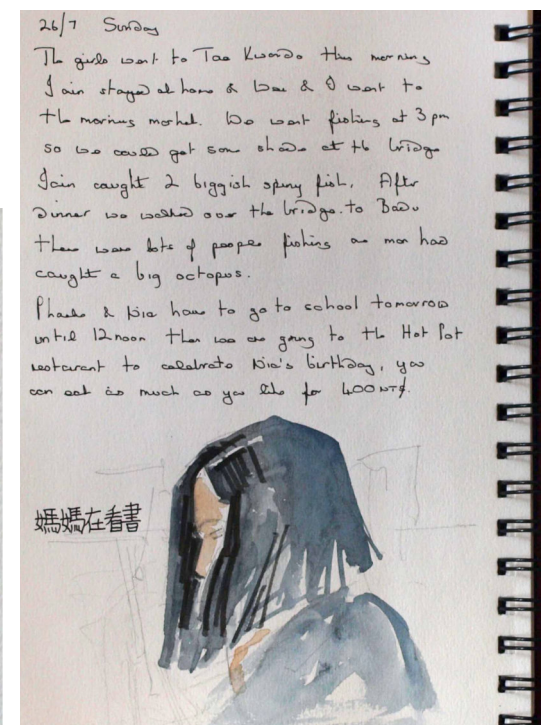 26/7 Sunday
The girls went to Tae Kwondo this morning
Iain stayed at home & & I went to
the morning market. We went fishing at 3pm
so we could get some shade at the bridge
Iain caught 2 biggish spiny fish. After
dinner we walked over the bridge. to
there were lots of people fishing one man had
caught a big octopus.
& Nia have to go to school tomorrow
until 12 noon then we are going to the Hot Pot
restaurant to celebrate Nia's birthday, you
can eat as much as you like for 400 NT$.
媽媽在看書